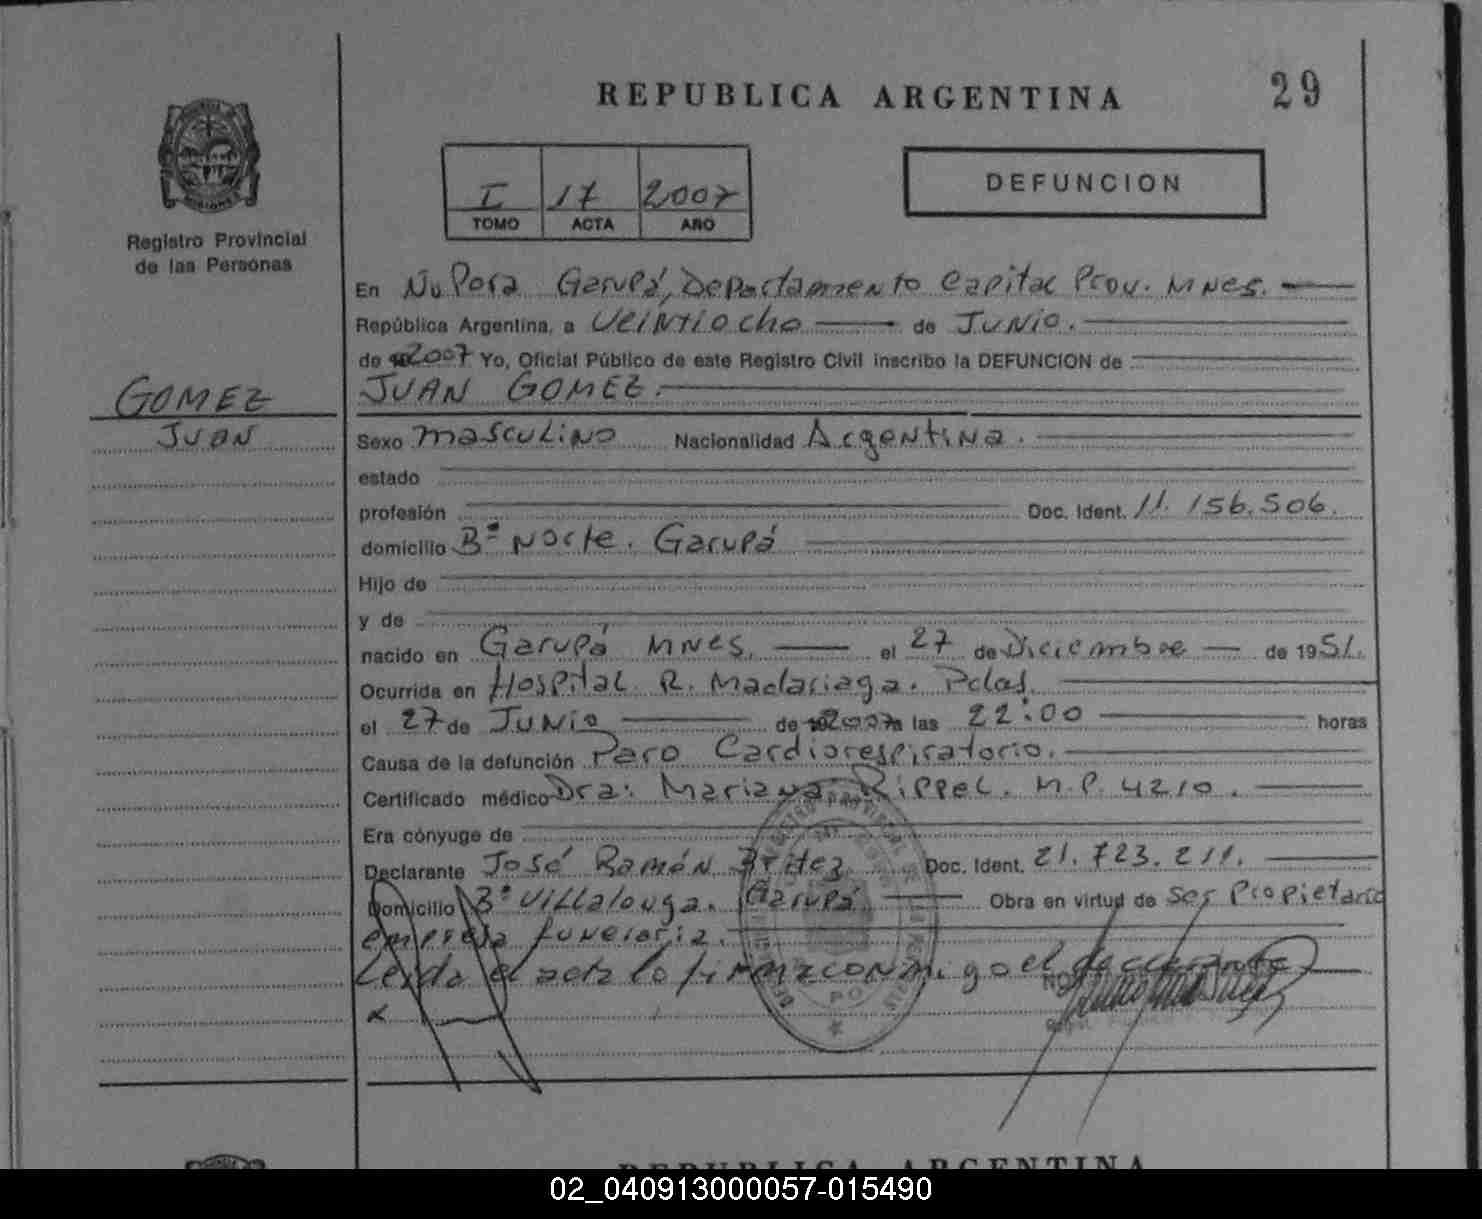 REPUBLICA ARGENTINA
29
I 17 2007
TOMO ACTA AÑO
DEFUNCION
Registro Provincial
de las Personas
GOMEZ
JUAN
En Ñu Pora Garupá, Departamento Capital Prov. MNES.
República Argentina, a Veintiocho de JUNIO.
de 2007 Yo, Oficial Público de este Registro Civil inscribo la DEFUNCION de
JUAN GOMEZ.
Sexo masculino Nacionalidad Argentina.
estado
profesión Doc. Ident. 11.156.506.
domicilio Bº Norte. Garupá
Hijo de
y de
nacido en Garupá MNES. el 27 de Diciembre de 1951.
Ocurrida en Hospital R. Madariaga. Pdas.
el 27 de JUNIO de 2007 a las 22:00 horas
Causa de la defunción Paro Cardiorespiratorio.
Certificado médico Dra: Mariana Rippel. M.P. 4210.
Era cónyuge de
Declarante José Ramón Britez Doc. Ident. 21.723.211.
Domicilio Bº Villalonga. Garupá Obra en virtud de Ser Propietario
empresa funeraria.
Leida el acta lo firma conmigo el declarante
REPUBLICA ARGENTINA
02_040913000057-015490